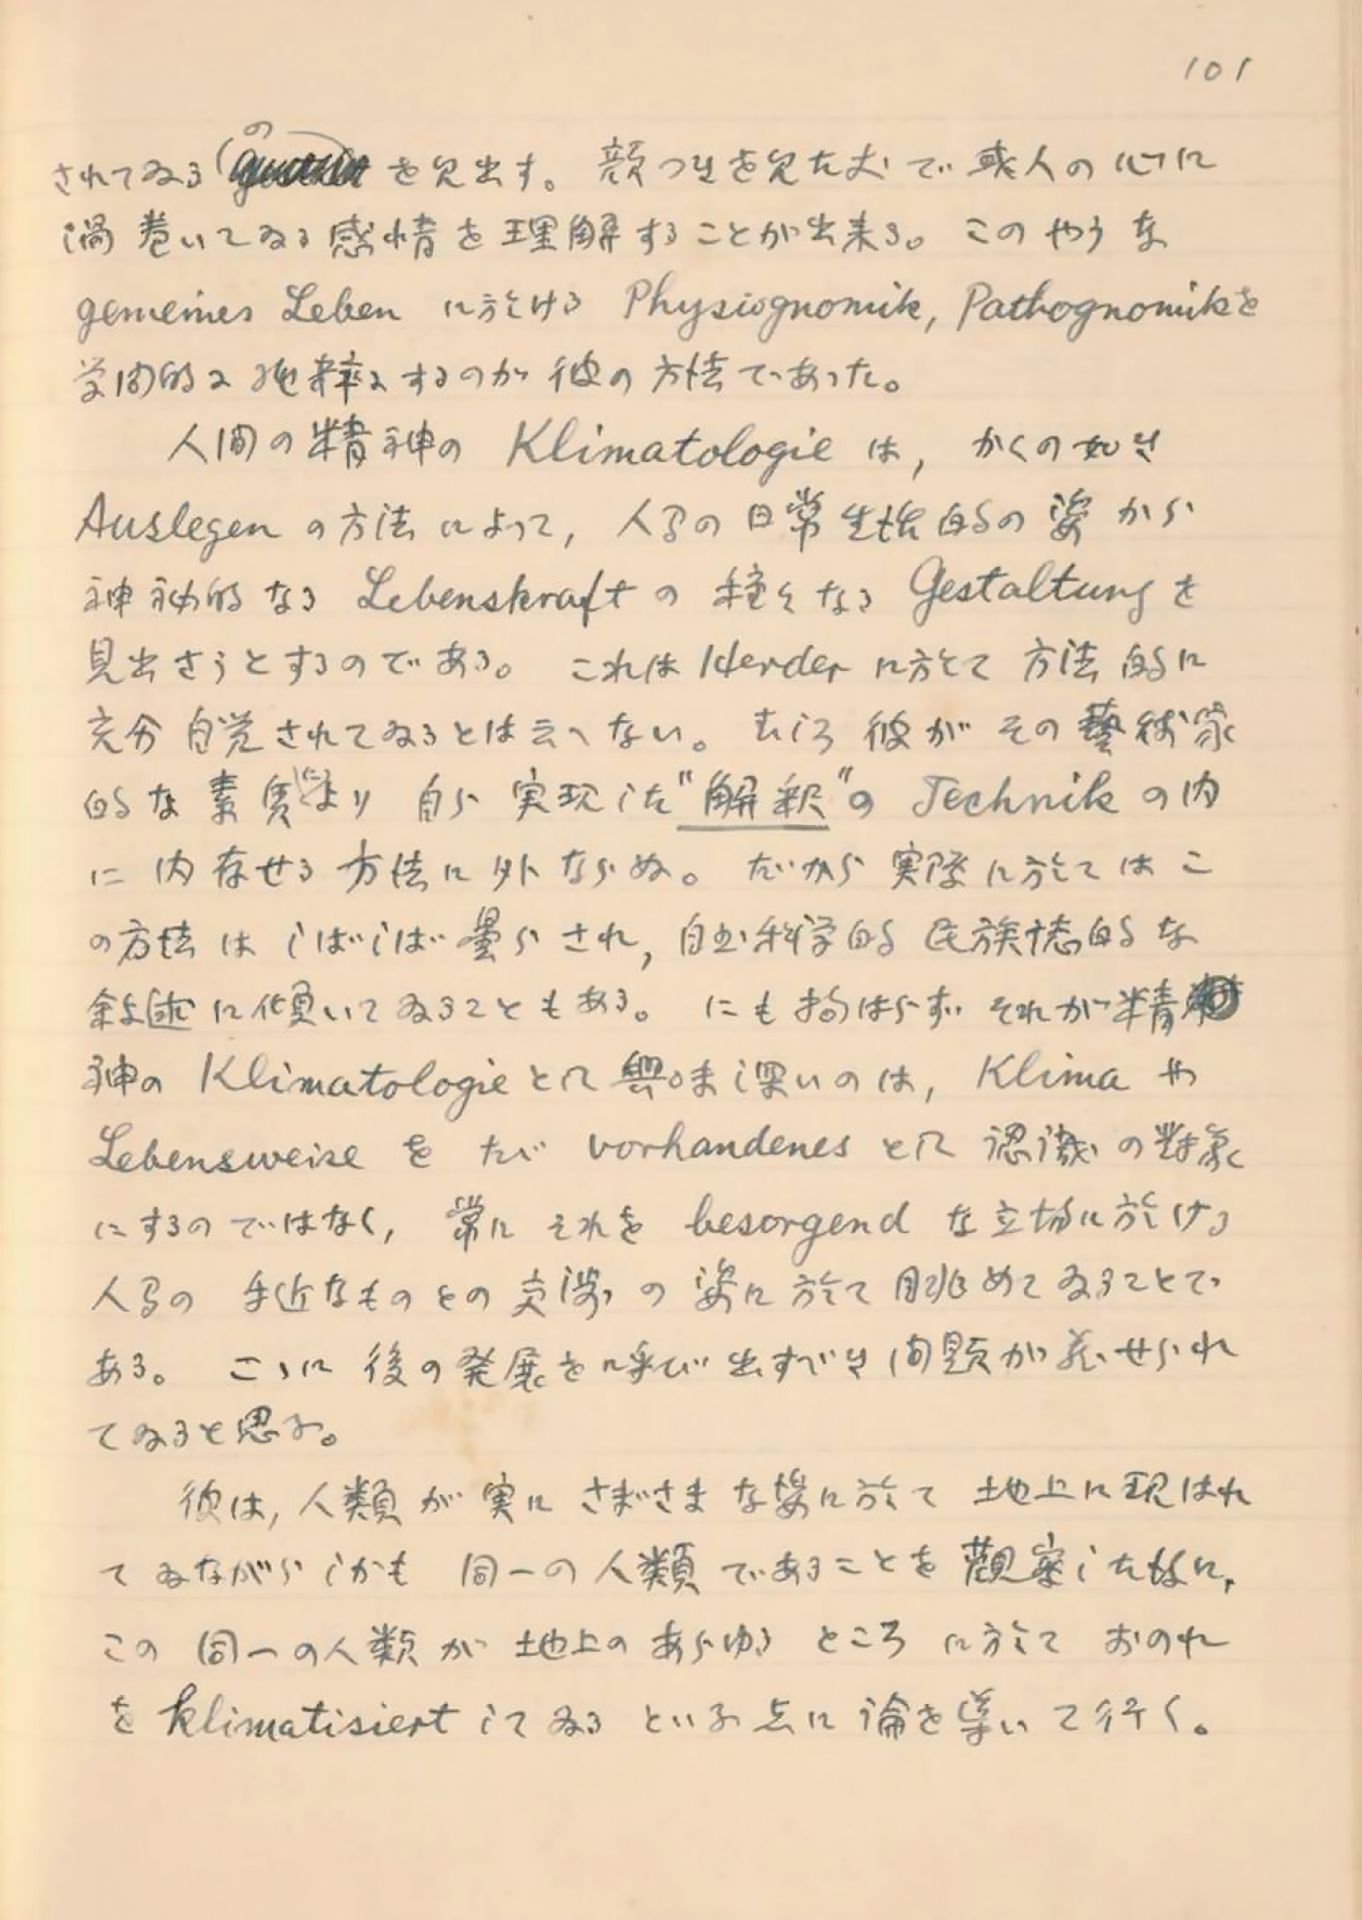 101
されてゐるのを見出す。顔つきを見た丈で或人の心に
渦巻いてゐる感情を理解することが出来る。このやうな
gemeines Leben に於ける Physiognomik, Pathognomikを
学問的に純粋にするのが彼の方法であった。
人間の精神の Klimatologie は, かくの如き
Auslegen の方法によって, 人間の日常生活的の姿から
精神的なる Lebenskraft の種々なる Gestaltung を
見出さうとするのである。これは Herder に於て方法的に
充分自覚されてゐるとは云へない。むしろ彼がその藝術家
的な素質により自ら実現した"解釈"の Technik の内
に内存せる方法に外ならぬ。だから実際に於てはこ
の方法はしばしば曇らされ, 自然科学的民族誌的な
敍述に傾いてゐることもある。にも拘はらずそれが精
神の Klimatologie として興味深いのは, Klima や
Lebensweise をたゞ vorhandenes として認識の対象
にするのではなく, 常にそれを besorgend な立場に於ける
人間の手近なものとの交渉の姿に於て眺めてゐることで
ある。こゝに後の発展を呼び出すべき問題が蔵せられ
てゐると思ふ。
彼は, 人類が実にさまざまな姿に於て地上に現はれ
てゐながらしかも同一の人類であることを觀察した後に,
この同一の人類が地上のあらゆるところに於ておのれ
を klimatisiert してゐるといふ点に論を導いて行く。